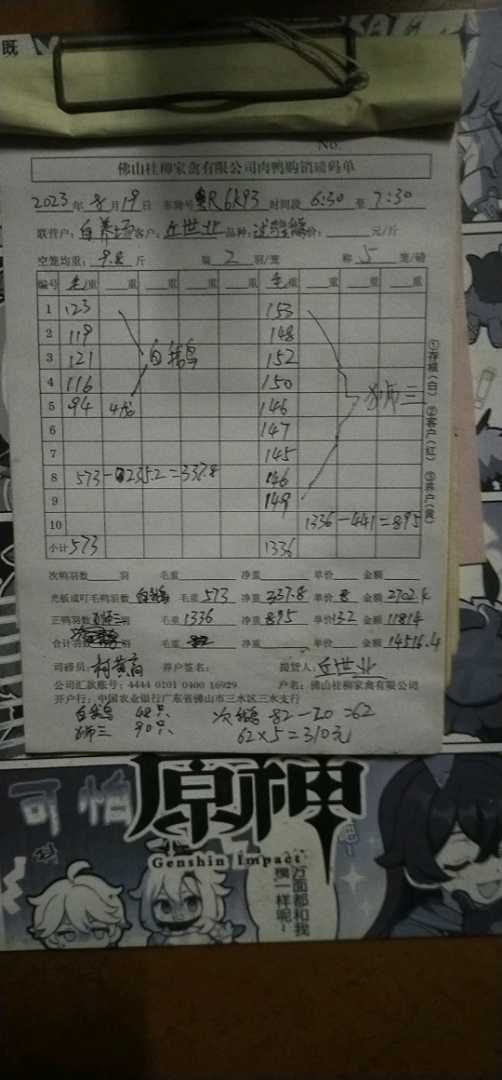 既
No.
佛山桂柳家禽有限公司肉鸭购销磅码单
2023年8月19日 车牌号粤R6K93 时间段6:30至7:30
联营户:自养场 客户:丘世业 品种: 价: 元/斤
空笼均重:9.8斤 每2羽/笼 称5笼/磅
编号 生/重 重 重 重 重 生重 重 重 重
1 123 153
2 119 148
3 121 白鹅 152
4 116 150 狮三
5 94 4龙 146
6 147
7 145
8 573-235.2=337.8 146
9 149
10 1336-441=895
小计 573 1336
①存根(白) ②客户(红) ③养户(黄)
次鸭羽数 羽 毛重 净重 单价 金额
光板或叮毛鸭羽数 白鹅 毛重573 净重337.8 单价8 金额2702.4
正鸭羽数 狮三羽 毛重1336 净重895 单价13.2 金额11814
合计羽数 毛重 净重 单价 金额14516.4
司磅员: 养户签名: 提货人:丘世业
公司汇款账号:4444 0101 0400 16929 户名:佛山桂柳家禽有限公司
开户行:中国农业银行广东省佛山市三水区三水支行
白鹅 48只 次鹅 82-20=62
狮三 90只 62×5=310元
可怕
原神
Genshin Impact
万面都和我
模一样呢~